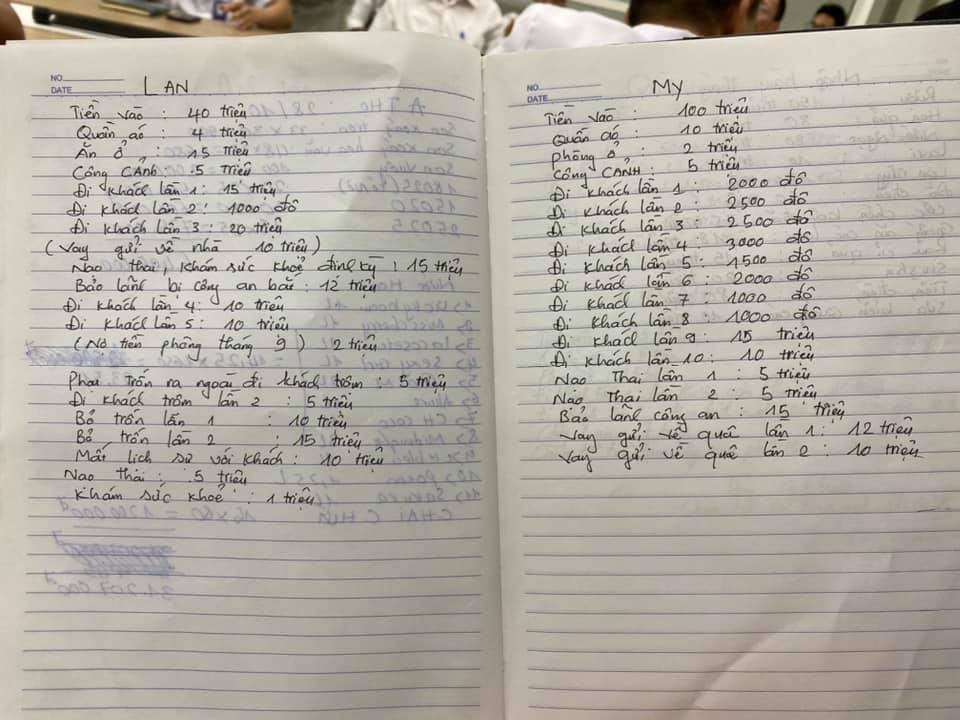 NO.
DATE
LAN
Tiền vào : 40 triệu
Quần aó : 4 triệu
Ăn ở : 15 triệu
Công CẢNh : 5 triệu
Đi khách lần 1 : 15 triệu
Đi khách lần 2 : 1000 đô
Đi khách lần 3 : 20 triệu
( Vay gửi về nhà 10 triệu )
Nạo thai, khám sức khoẻ định kỳ : 15 triệu
Bảo lãnh bị công an bắt : 12 triệu
Đi khách lần 4 : 10 triệu
Đi khách lần 5 : 10 triệu
( Nợ tiền phòng tháng 9 ) 2 triệu
Phạt trốn ra ngoài đi khách trộm : 5 triệu
Đi khách trộm lần 2 : 5 triệu
Bỏ trốn lần 1 : 10 triệu
Bỏ trốn lần 2 : 15 triệu
Mất lịch sự với khách : 10 triệu
Nạo thai : 5 triệu
Khám sức khoẻ : 1 triệu
NO.
DATE
MY
Tiền vào : 100 triệu
Quần aó : 10 triệu
phòng ở : 2 triệu
Công CẢNH : 5 triệu
Đi khách lần 1 : 2000 đô
Đi khách lần 2 : 2500 đô
Đi khách lần 3 : 2500 đô
Đi khách lần 4 : 3000 đô
Đi khách lần 5 : 1500 đô
Đi khách lần 6 : 2000 đô
Đi khách lần 7 : 1000 đô
Đi khách lần 8 : 1000 đô
Đi khách lần 9 : 15 triệu
Đi khách lần 10 : 10 triệu
Nạo Thai lần 1 : 5 triệu
Nạo Thai lần 2 : 5 triệu
Bảo lãnh công an : 15 triệu
Vay gửi về quê lần 1 : 12 triệu
Vay gửi về quê lần 2 : 10 triệu